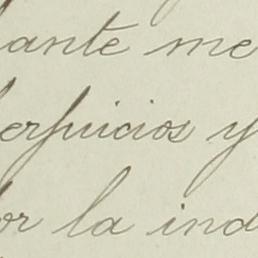 ante me
erjuicios y
or la ind